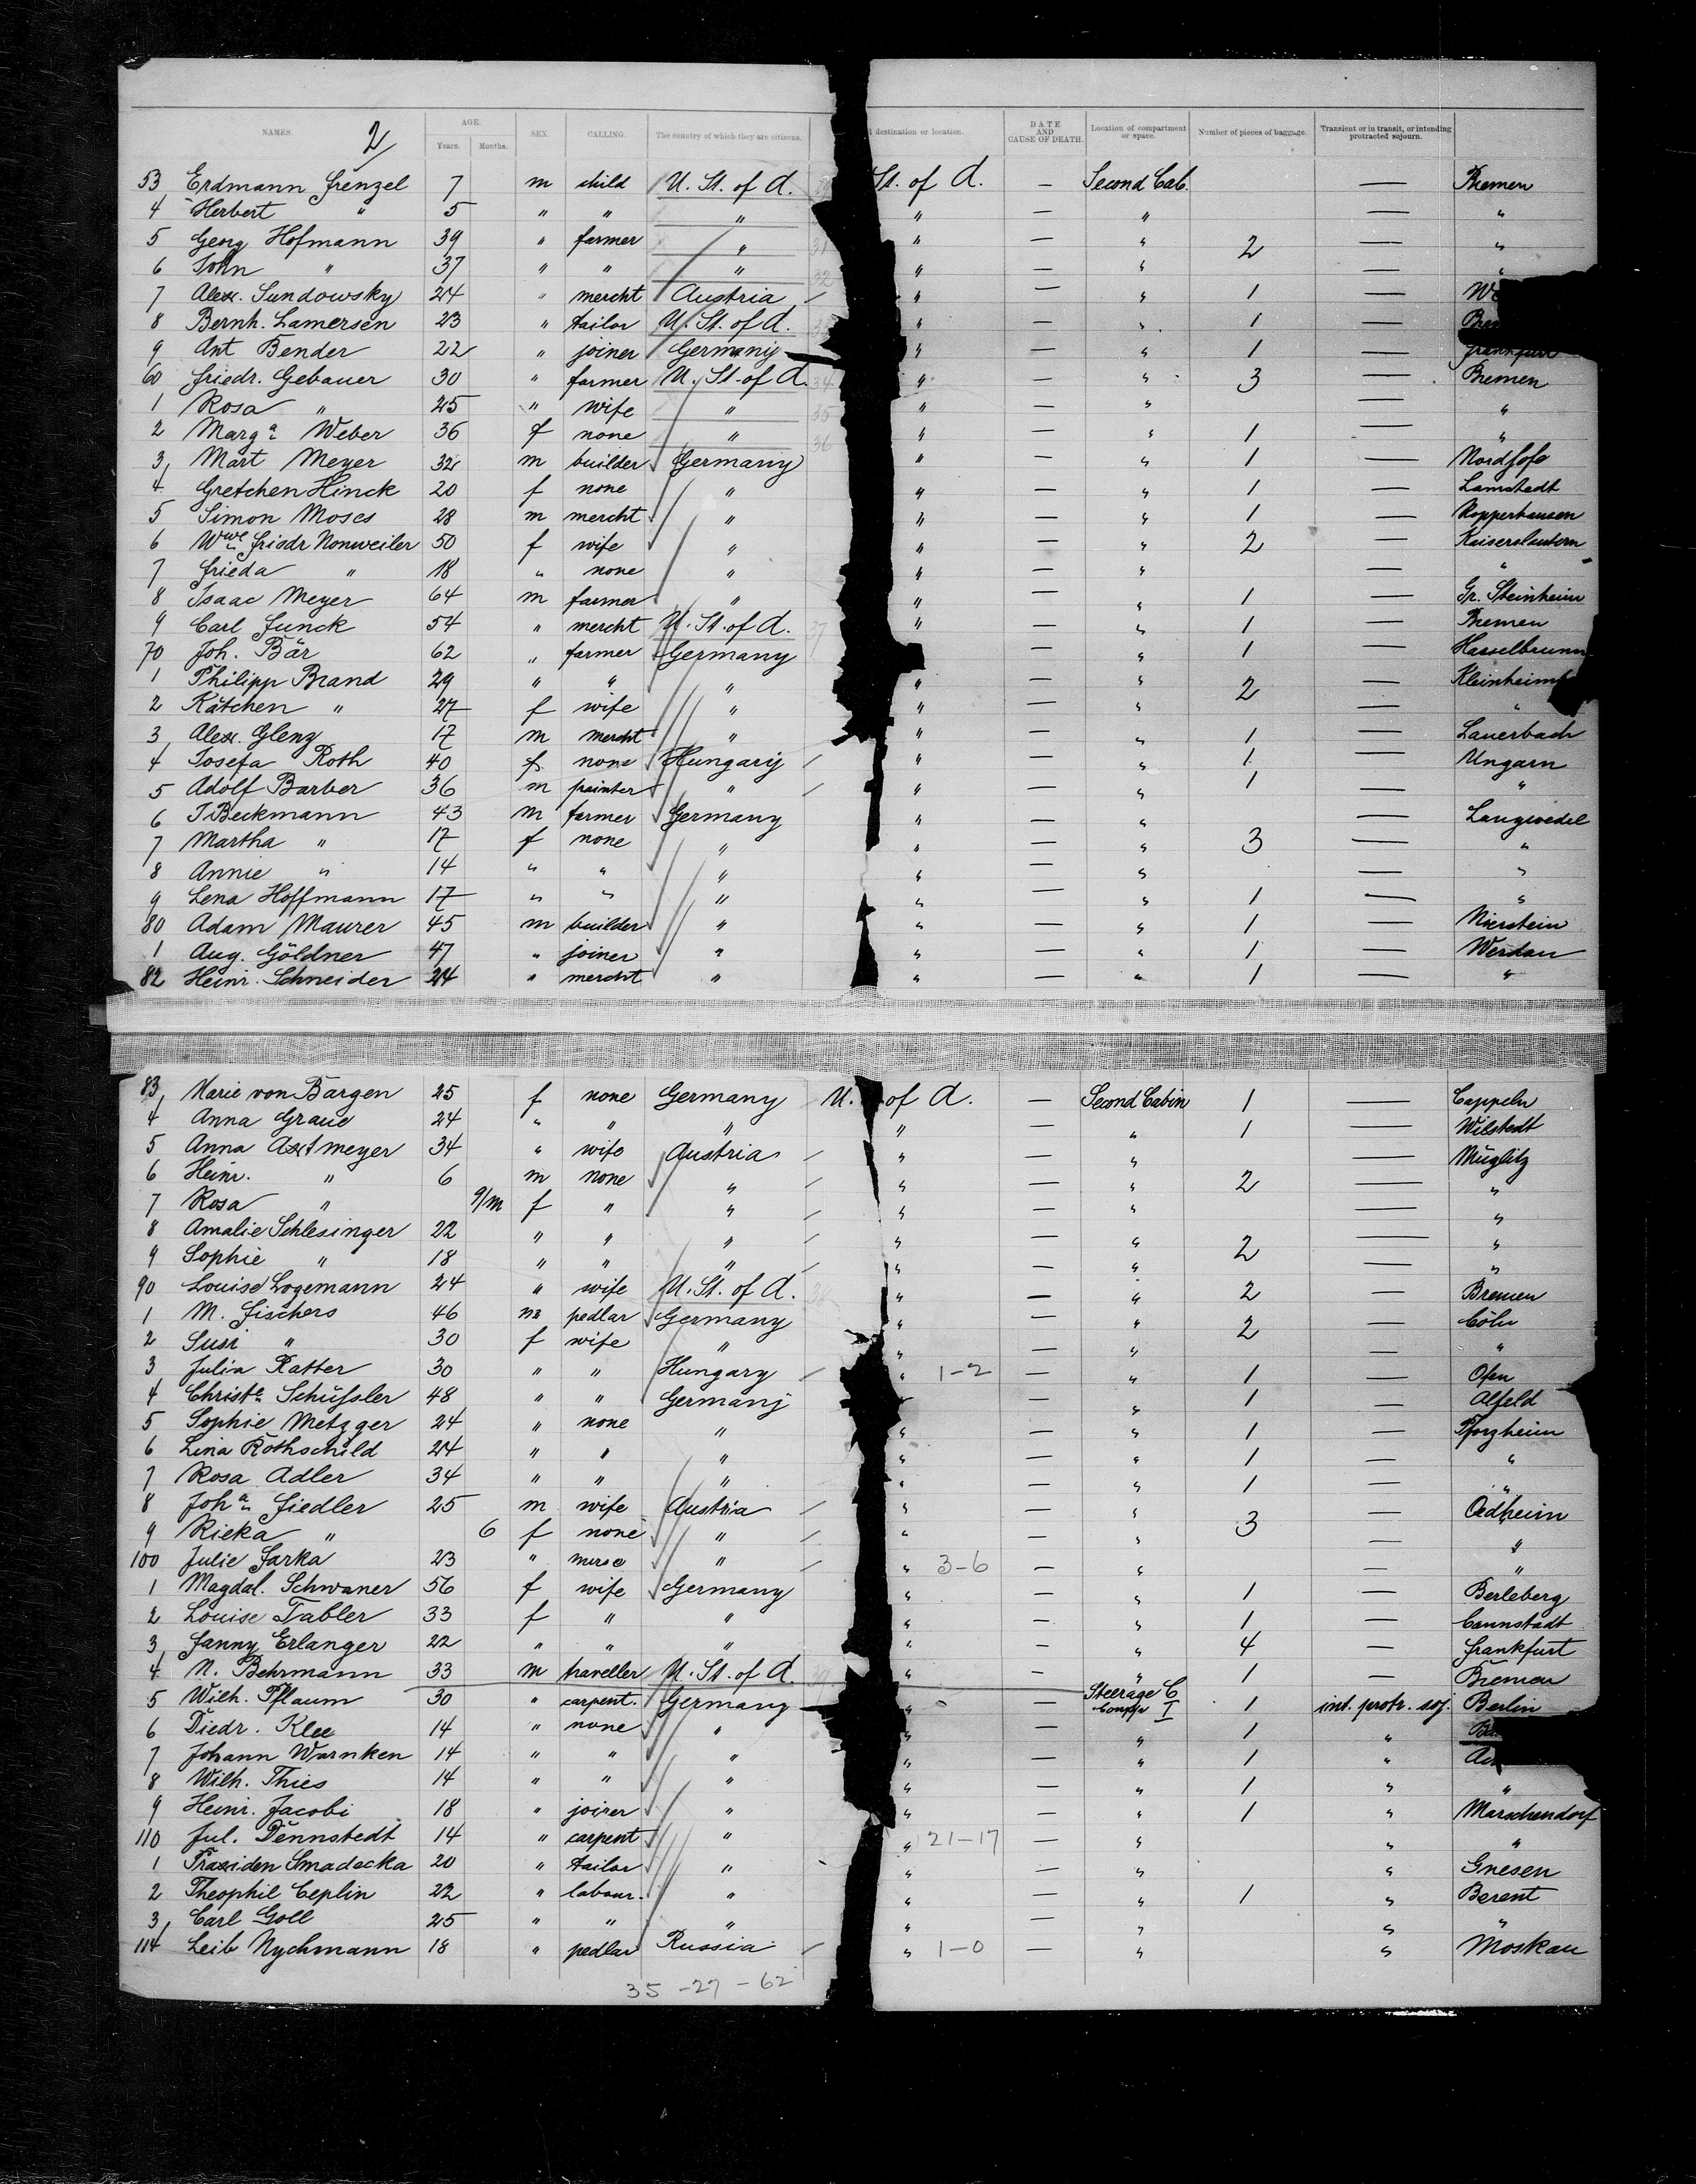 NAMES. AGE. SEX. CALLING. The country of which they are citizens. l destination or location. DATE AND CAUSE OF DEATH. Location of compartment or space. Number of pieces of baggage. Transient or in transit, or intending protracted sojourn.
2 Years. Months.
53 Erdmann Frenzel 7 m child U. St. of A. St. of A. — Second Cab. — Bremen
4 Herbert " 5 " " " " — " — "
5 Georg Hofmann 39 " farmer " 31 " — " 2 — "
6 John " 37 " " " 32 " — " — "
7 Alex. Sundowsky 24 " mercht Austria " — " 1 —
8 Bernh. Lamersen 23 " tailor U. St. of A. " — " 1 —
9 Ant Bender 22 " joiner Germany " — " 1 — Frankfurt
60 Friedr. Gebauer 30 " farmer U. St. of A. 34 " — " 3 — Bremen
1 Rosa " 25 " wife " 35 " — " — "
2 Marga Weber 36 f none " 36 " — " 1 — "
3 Mart Meyer 32 m builder Germany " — " 1 —
4 Gretchen Hinck 20 f none " " — " 1 — Lamstedt
5 Simon Moses 28 m mercht " " — " 1 — Kopperhausen
6 Wwe Friedr Nonweiler 50 f wife " " — " 2 — Kaiserslautern
7 Frieda " 18 " none " " — " — "
8 Isaac Meyer 64 m farmer " " — " 1 — Gr. Steinheim
9 Carl Junck 54 " mercht U. St. of A. 37 " — " 1 — Bremen
70 Joh. Bär 62 " farmer Germany — " 1 — Hasselbrunn
1 Philipp Brand 29 " " " " — " 2 —
2 Kätchen " 27 f wife " " — " — "
3 Alex. Glenz 17 m mercht " " — " 1 — Lauerbach
4 Josefa Roth 40 f none Hungary " — " 1 — Ungarn
5 Adolf Barber 36 m painter " " — " 1 — "
6 J Beckmann 43 m farmer Germany " — " — Langwedel
7 Martha " 17 f none " " — " 3 — "
8 Annie " 14 " " " " — " — "
9 Lena Hoffmann 17 " " " " — " 1 — "
80 Adam Maurer 45 m builder " " — " 1 — Nierstein
1 Aug. Göldner 47 " joiner " " — " 1 — Werdau
82 Heinr. Schneider 24 " mercht " " — " 1 — "
83 Marie von Bargen 25 f none Germany U. of A. — Second Cabin 1 — Cappeln
4 Anna Graue 24 " " " " — " 1 — Wilstedt
5 Anna Axtmeyer 34 " wife Austria " — " — Müglitz
6 Heinr. " 6 m none " " — " 2 — "
7 Rosa " 9/m f " " " — " — "
8 Amalie Schlesinger 22 " " " " — " 2 — "
9 Sophie " 18 " " " " — " — "
90 Louise Logemann 24 " wife U. St. of A. " — " 2 — Bremen
1 M. Fischers 46 m pedlar Germany " — " 2 — Cöln
2 Susi " 30 f wife " " — " — "
3 Julia Ratter 30 " " Hungary " 1-2 — " 1 — Ofen
4 Christe Schüssler 48 " " Germany " — " 1 — Alfeld
5 Sophie Metzger 24 " none " " — " 1 — Pforzheim
6 Lina Rothschild 24 " " " " — " 1 — "
7 Rosa Adler 34 " " " " — " 1 — "
8 Joha Fiedler 25 m wife Austria " — " 3 — Oedheim
9 Rieka " 6 f none " " — " — "
100 Julie Jarka 23 " nurse " " 3-6 — " — "
1 Magdal. Schwaner 56 f wife Germany " — " 1 — Berleberg
2 Louise Tabler 33 f " " " — " 1 — Cannstadt
3 Fanny Erlanger 22 " " " " — " 4 — Frankfurt
4 N. Behrmann 33 m traveller U. St. of A. " — " 1 — Bremen
5 Wilh. Pflaum 30 " carpent. Germany " — Steerage C Compt I 1 int. protr. soj. Berlin
6 Diedr. Klee 14 " none " " — " 1 "
7 Johann Warnken 14 " " " " — " 1 "
8 Wilh. Thies 14 " " " " — " 1 " "
9 Heinr. Jacobi 18 " joiner " " — " 1 " Marschendorf
110 Jul. Dennstedt 14 " carpent " " 21-17 — " " "
1 Praxiden Smadecka 20 " tailor " " — " " Gnesen
2 Theophil Ceplin 22 " labour. " " — " 1 " Berent
3 Carl Goll 25 " " " " — " " "
114 Leib Nychmann 18 " pedlar Russia " 1-0 — " " Moskau
35 - 27 - 62